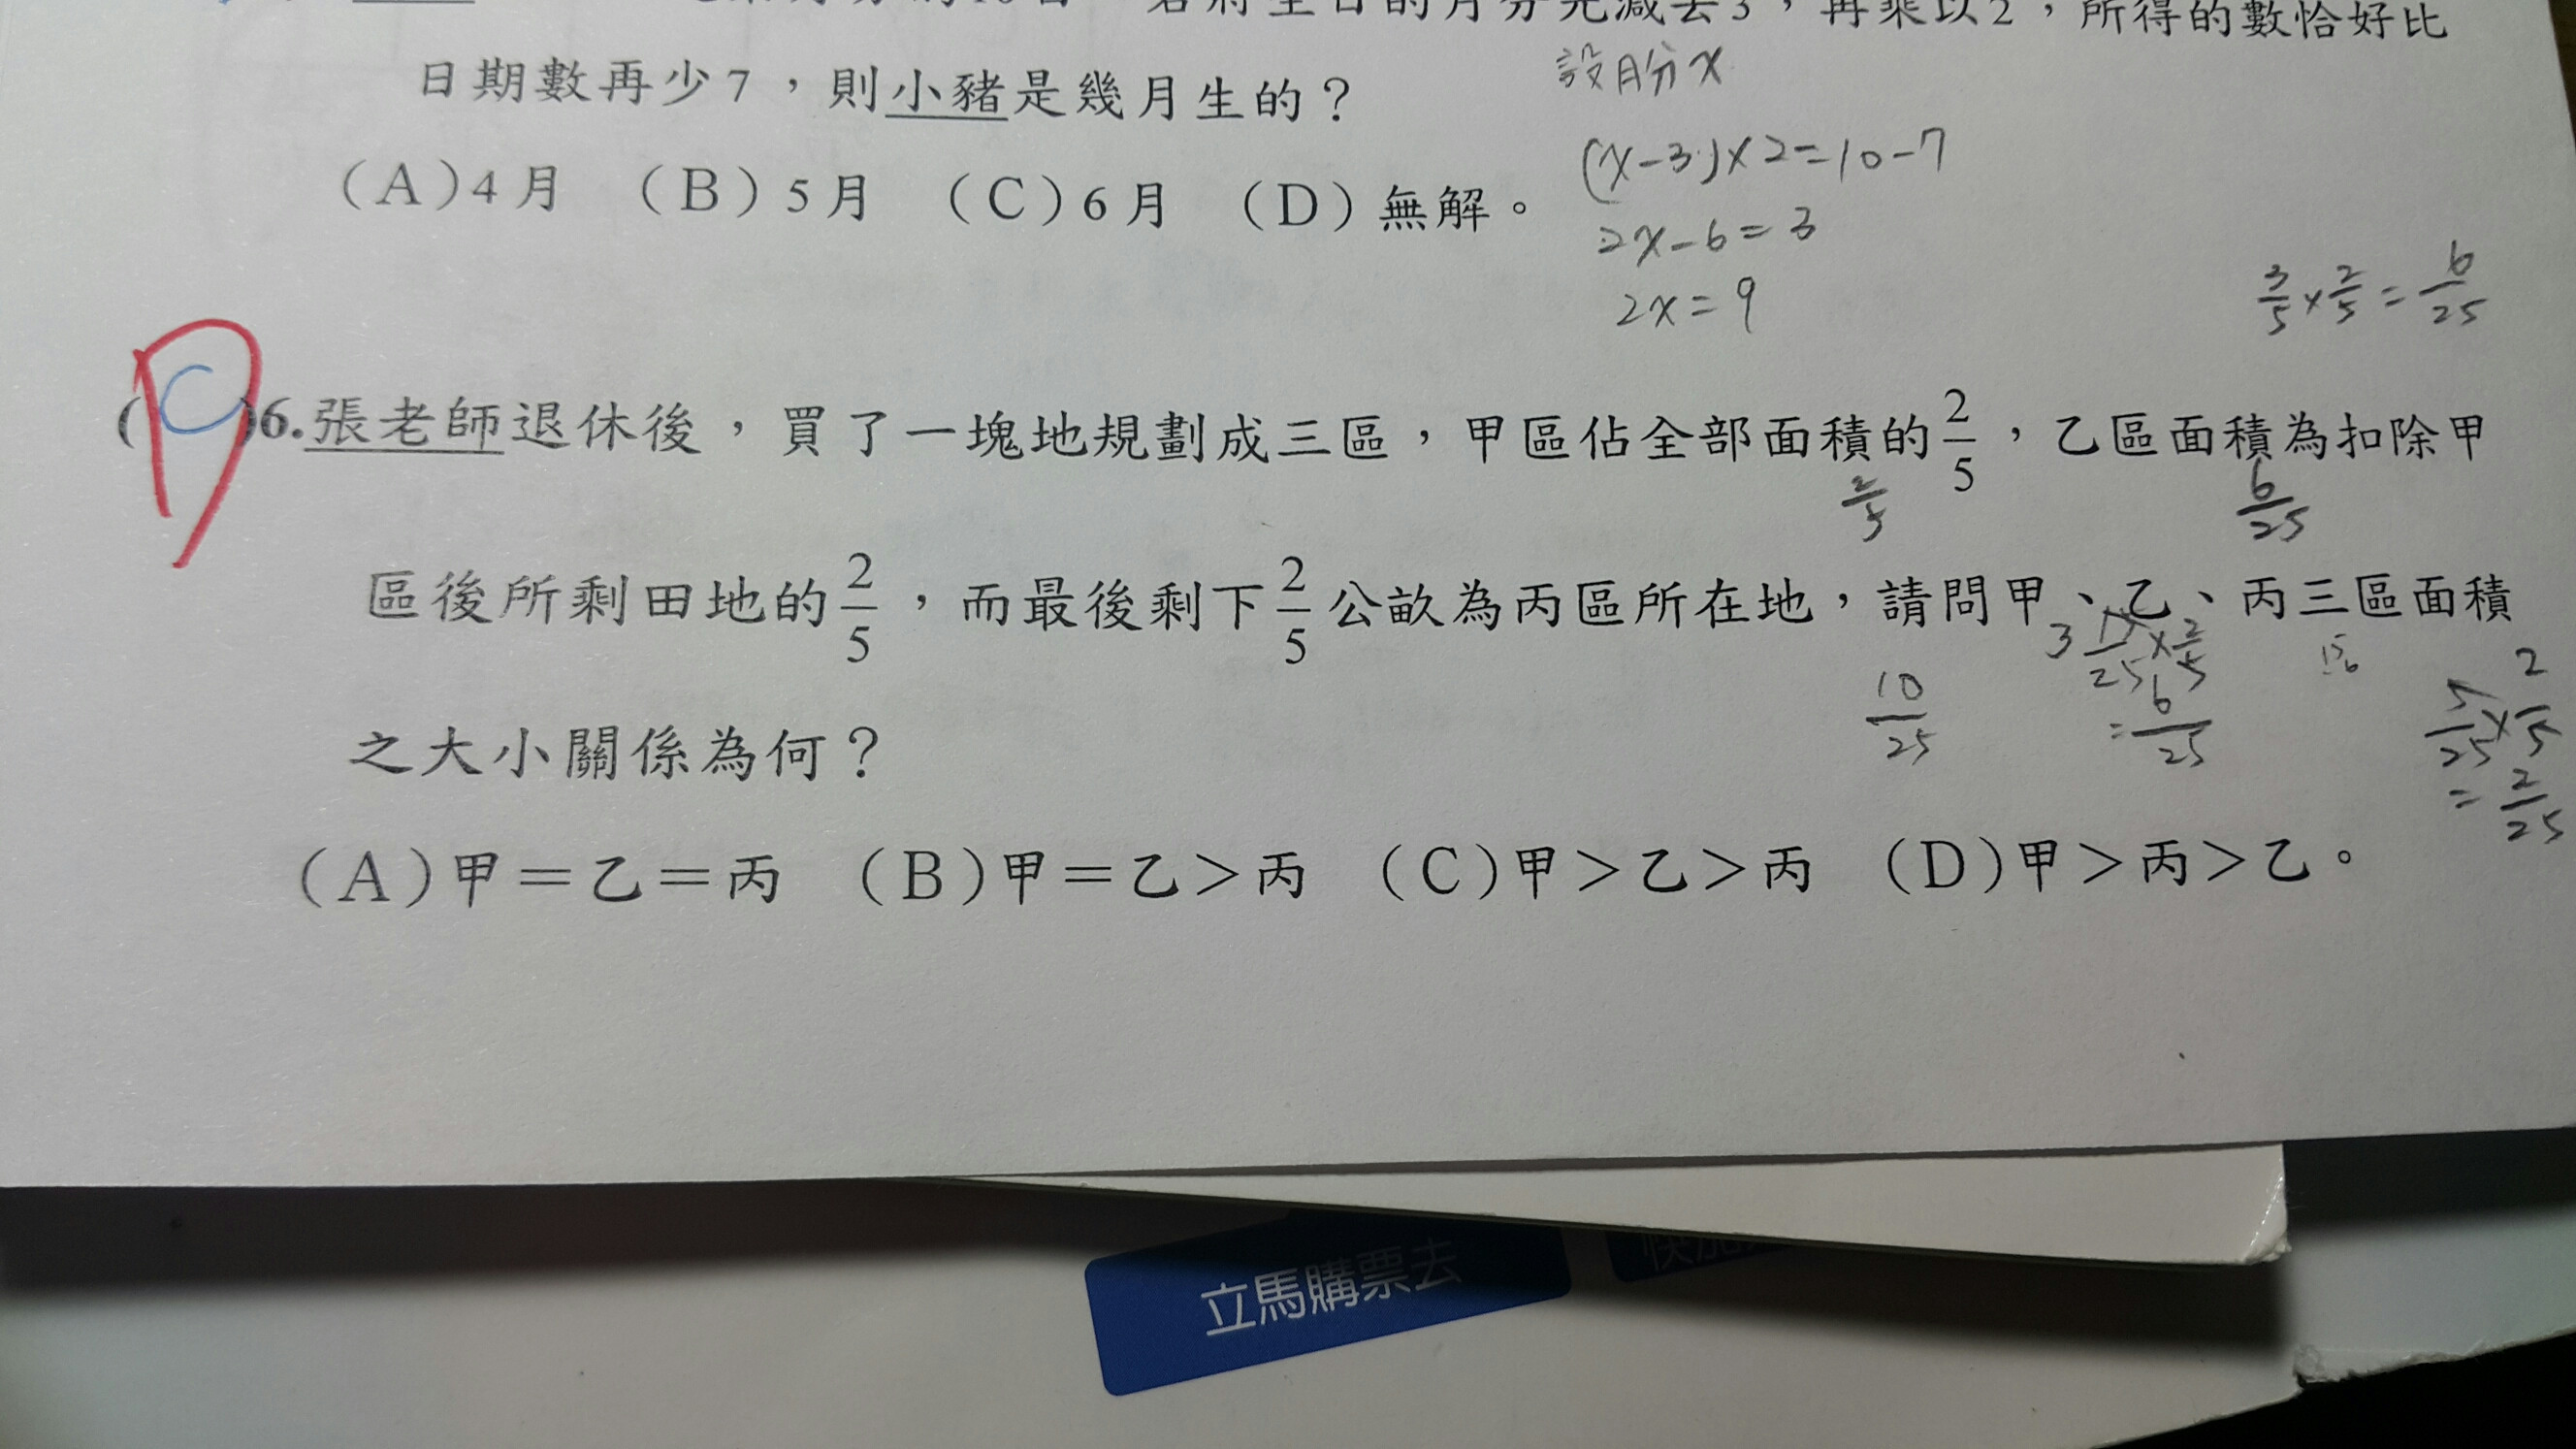 若將生日的月分先減去3，再乘以2，所得的數恰好比
日期數再少7，則小豬是幾月生的？
設月分x
(A)4月 (B)5月 (C)6月 (D)無解。
(x-3)×2=10-7
2x-6=3
2x=9
3/5×2/5=6/25
D
(C)6.張老師退休後，買了一塊地規劃成三區，甲區佔全部面積的2/5，乙區面積為扣除甲
2/5
6/25
區後所剩田地的2/5，而最後剩下2/5公畝為丙區所在地，請問甲、乙、丙三區面積
10/25
×2/5
=6/25
5/25×2/5
=2/25
之大小關係為何？
(A)甲＝乙＝丙 (B)甲＝乙＞丙 (C)甲＞乙＞丙 (D)甲＞丙＞乙。
立馬購票去